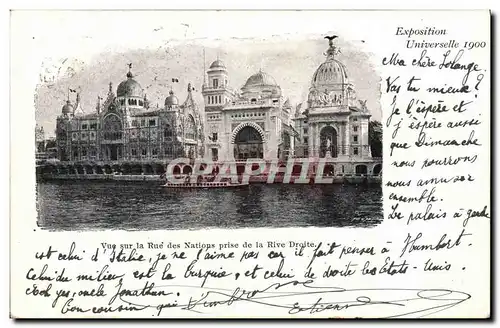 Exposition
Universelle 1900
Ma chère Solange.
Vas tu mieux?
Je l'espère et
j'espère aussi
que Dimanche
nous pourrons
nous amuser
ensemble.
Le palais à garde
CPARAMA
Vue sur la Rue des Nations prise de la Rive Droite.
est celui d'Italie, je ne l'aime pas car il fait penser à Humbert.
Celui du milieu, est la Turquie, et celui de droite les États-Unis.
oh yes, oncle Jonathan.
Ton cousin qui t'embrasse
Étienne